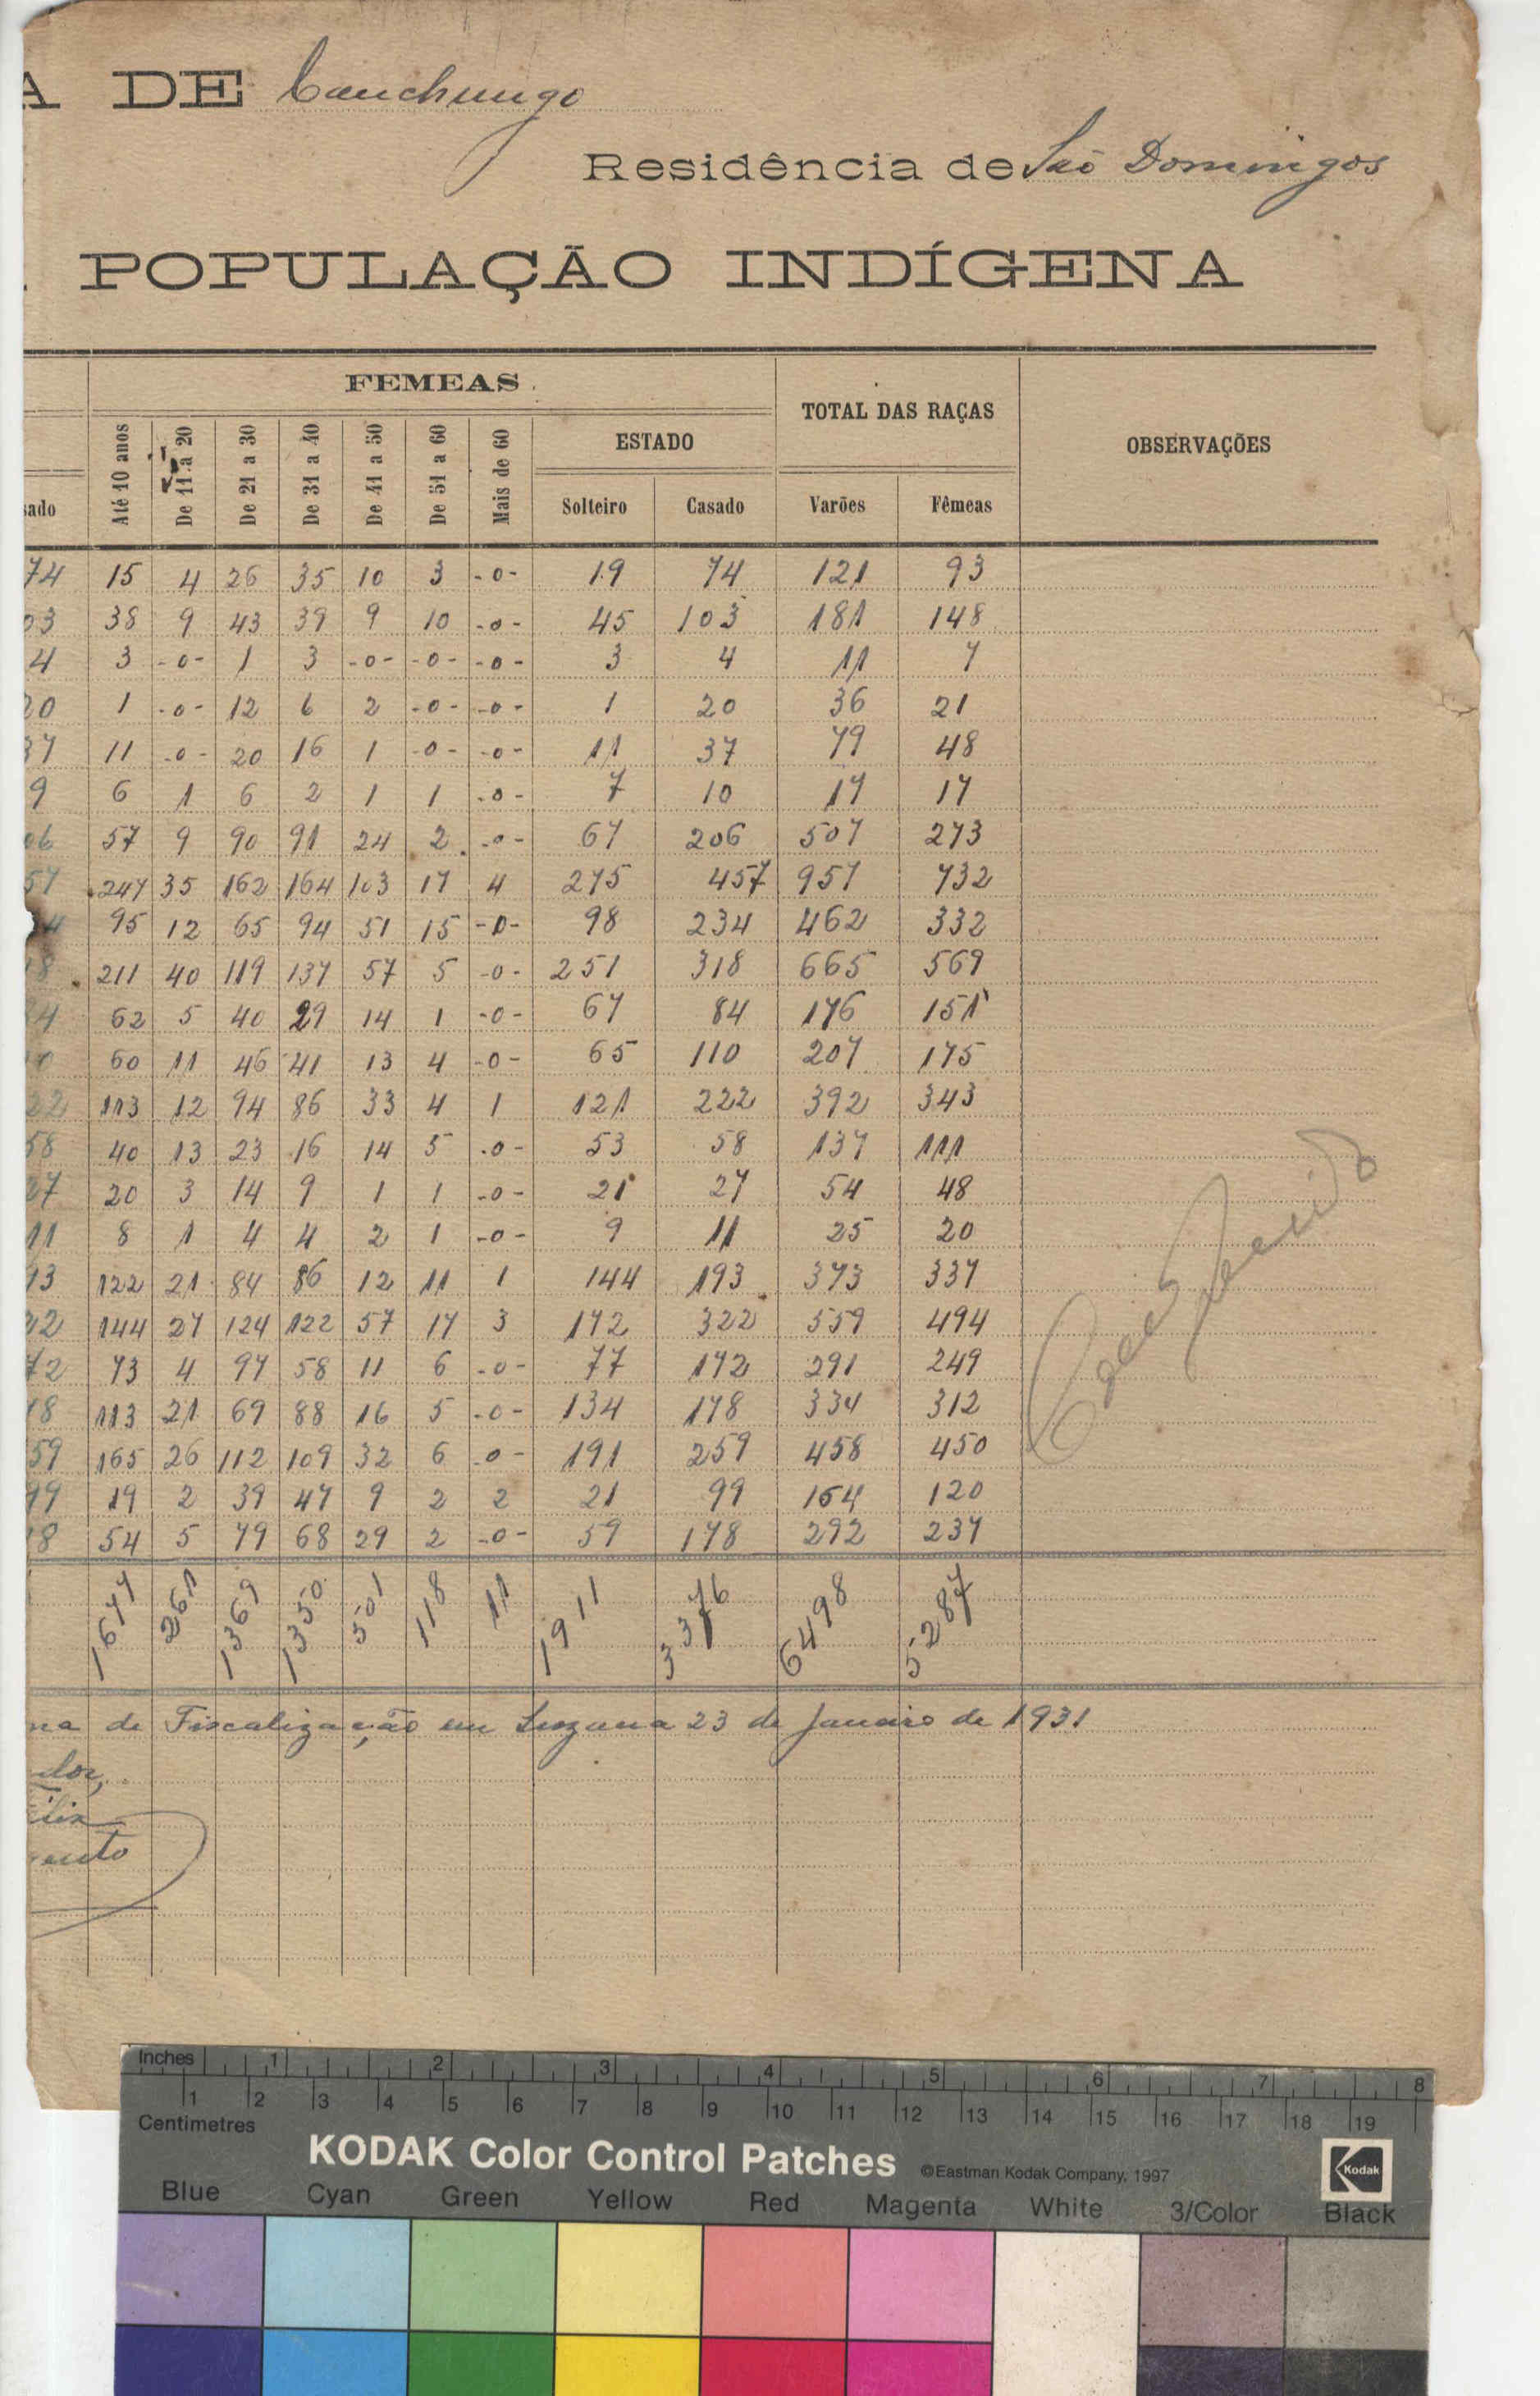 A DE Canchungo
Residência de São Domingos
POPULAÇÃO INDÍGENA
FEMEAS
TOTAL DAS RAÇAS
OBSERVAÇÕES
ESTADO
sado Até 10 anos De 11 a 20 De 21 a 30 De 31 a 40 De 41 a 50 De 51 a 60 Mais de 60 Solteiro Casado Varões Fêmeas
74 15 4 26 35 10 3 -0- 19 74 121 93
03 38 9 43 39 9 10 -0- 45 103 181 148
4 3 -0- 1 3 -0- -0- -0- 3 4 11 7
20 1 -0- 12 6 2 -0- -0- 1 20 36 21
37 11 -0- 20 16 1 -0- -0- 11 37 79 48
9 6 1 6 2 1 1 -0- 7 10 17 17
06 57 9 90 91 24 2 -0- 67 206 507 273
57 247 35 162 164 103 17 4 275 457 957 732
4 95 12 65 94 51 15 -0- 98 234 462 332
18 211 40 119 137 57 5 -0- 251 318 665 569
84 62 5 40 29 14 1 -0- 67 84 176 151
0 60 11 46 41 13 4 -0- 65 110 207 175
22 113 12 94 86 33 4 1 121 222 392 343
58 40 13 23 16 14 5 -0- 53 58 137 111
27 20 3 14 9 1 1 -0- 21 27 54 48
11 8 1 4 4 2 1 -0- 9 11 25 20
93 122 21 84 86 12 11 1 144 193 373 337
22 144 27 124 122 57 17 3 172 322 559 494
72 73 4 97 58 11 6 -0- 77 172 291 249
78 113 21 69 88 16 5 -0- 134 178 334 312
59 165 26 112 109 32 6 -0- 191 259 458 450
99 19 2 39 47 9 2 2 21 99 164 120
78 54 5 79 68 29 2 -0- 59 178 292 237
1677 261 1369 1350 501 118 11 1911 3376 6498 5287
na de Fiscalização em Suzana 23 de Janeiro de 1931
dor,
ento
Inches 1 2 3 4 5 6 7 8
1 2 3 4 5 6 7 8 9 10 11 12 13 14 15 16 17 18 19
Centimetres
KODAK Color Control Patches ©Eastman Kodak Company, 1997 Kodak
Blue Cyan Green Yellow Red Magenta White 3/Color Black